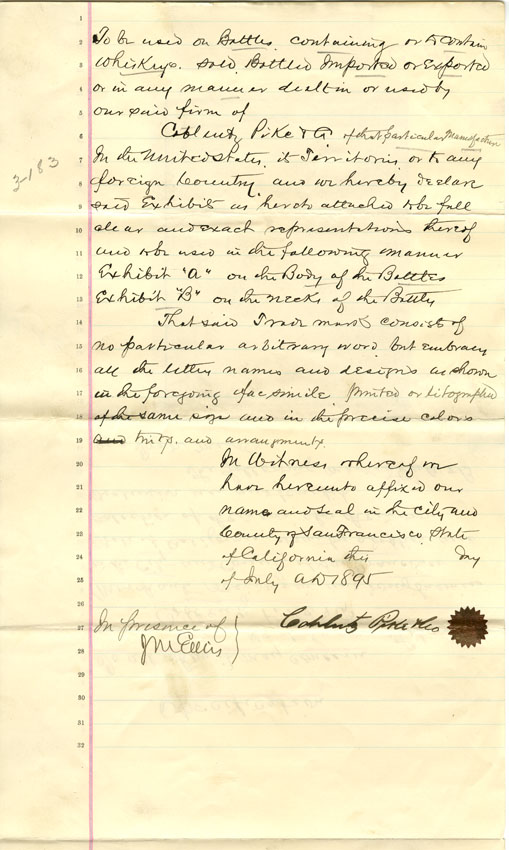 To be used on Bottles containing or to contain
Whiskeys. Sold, Bottled Imported or Exported
or in any manner dealt in or used by
our said firm of
Coblentz Pike & Co of that particular Manufacture
In the United States, it Territories or to any
foreign Country and we hereby declare
said Exhibits as hereto attached to be full
clear and exact representations thereof
and to be used in the following manner
Exhibit "A" on the Body of the Bottles
Exhibit "B" on the necks of the Bottles
That said Trade mark consists of
no particular arbitrary word but embraces
all the letters names and designs as shown
in the foregoing facsimile. Printed or Litographed
of the same size and in the precise colors
and tints. and arrangements.
In Witness whereof we
have hereunto affixed our
name and seal in the city and
County of San Francisco. State
of California this Day
of July AD 1895
In presence of
J M Ellis
Coblentz Pike & Co
3-183
1
2
3
4
5
6
7
8
9
10
11
12
13
14
15
16
17
18
19
20
21
22
23
24
25
26
27
28
29
30
31
32